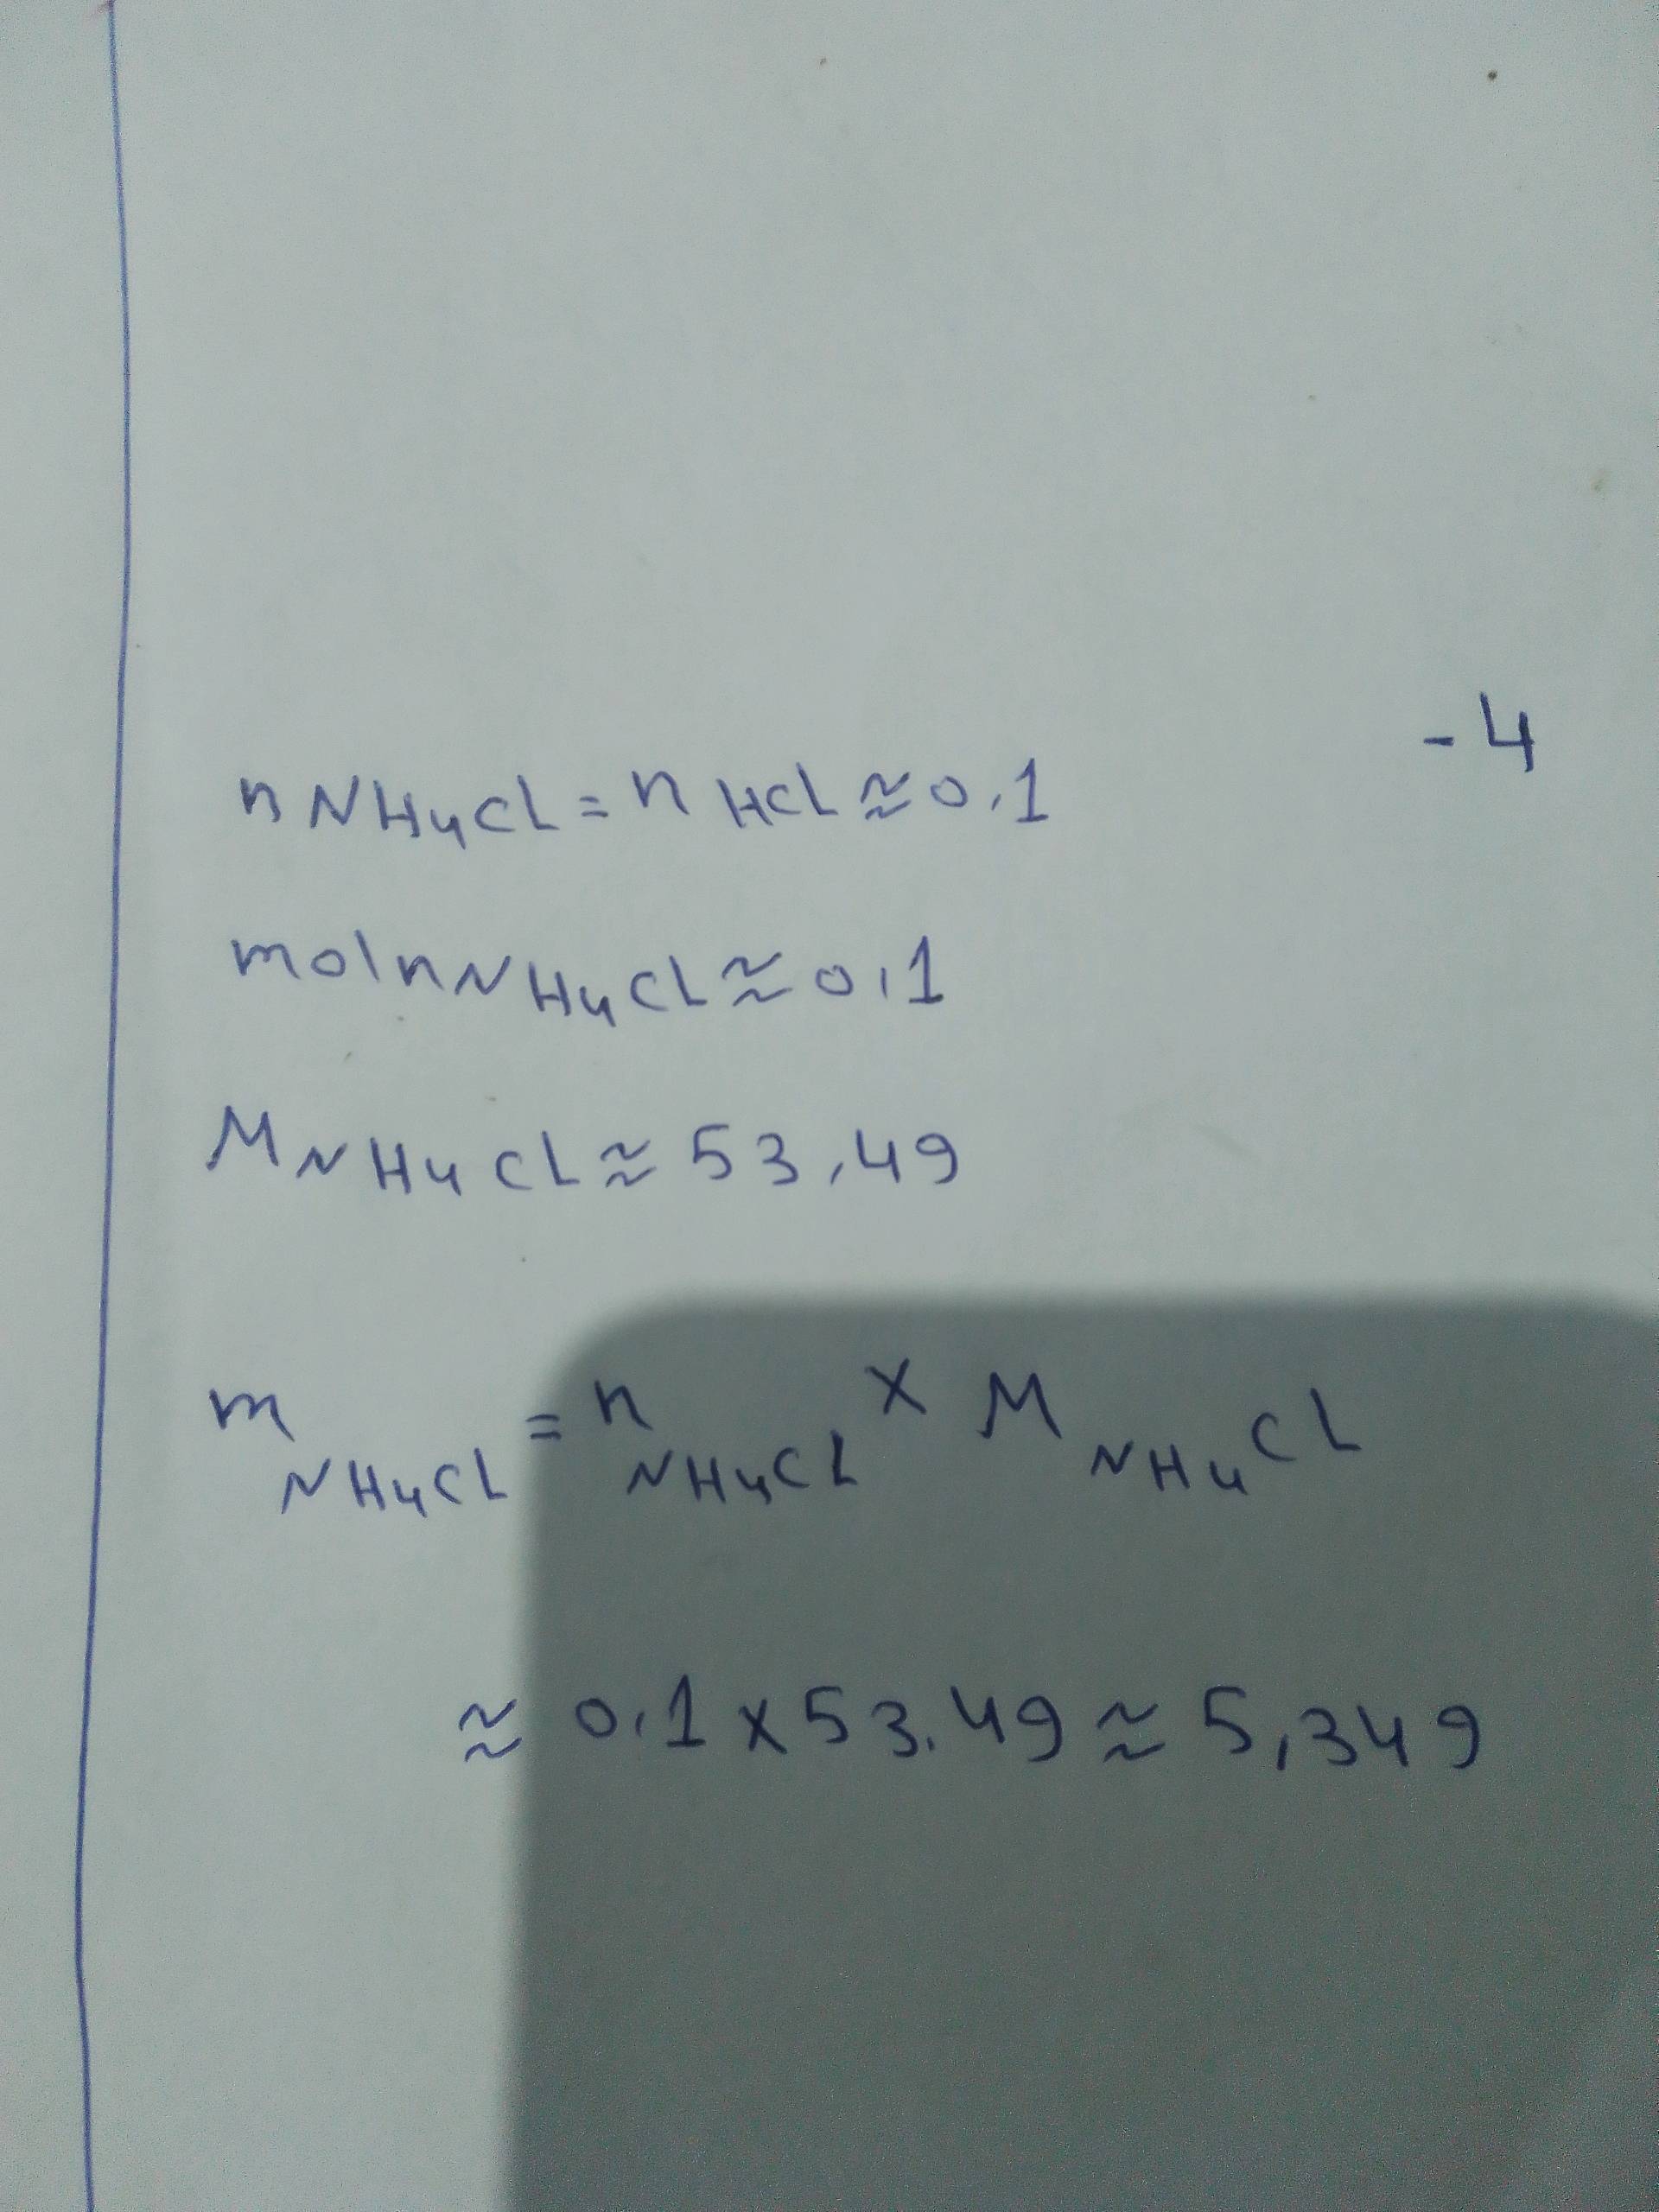 -4
n NH₄CL = n HCL ≈ 0,1
moln NH₄CL ≈ 0,1
M NH₄CL ≈ 53,49
m NH₄CL = n NH₄CL × M NH₄CL
≈ 0,1 × 53,49 ≈ 5,349